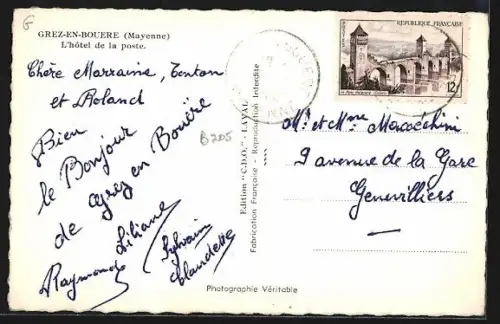 GREZ-EN-BOUERE (Mayenne)
L'hôtel de la poste.
Chère Marraine, Tonton
et Roland
Bien
le Bonjour
de Grez en Bouëre
Liliane
Raymonde
Sylvain
Claudette
B205
Edition "C.D.O." - LAVAL
Fabrication Française - Reproduction Interdite
Photographie Véritable
REPUBLIQUE FRANÇAISE
12F
Mr et Mme
9 avenue de la Gare
Genevilliers